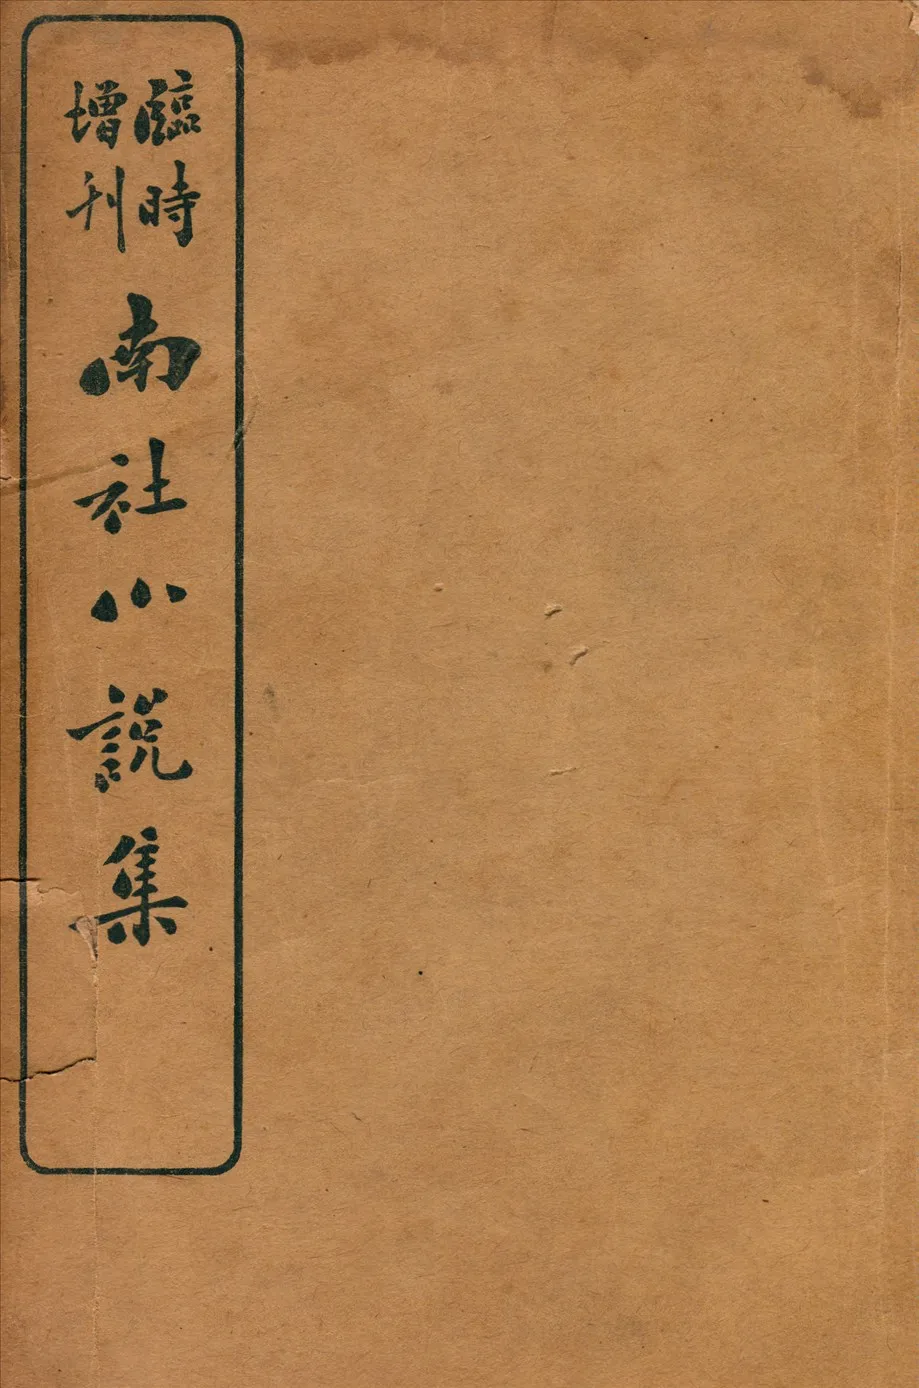 臨時
增刊
南社小說集